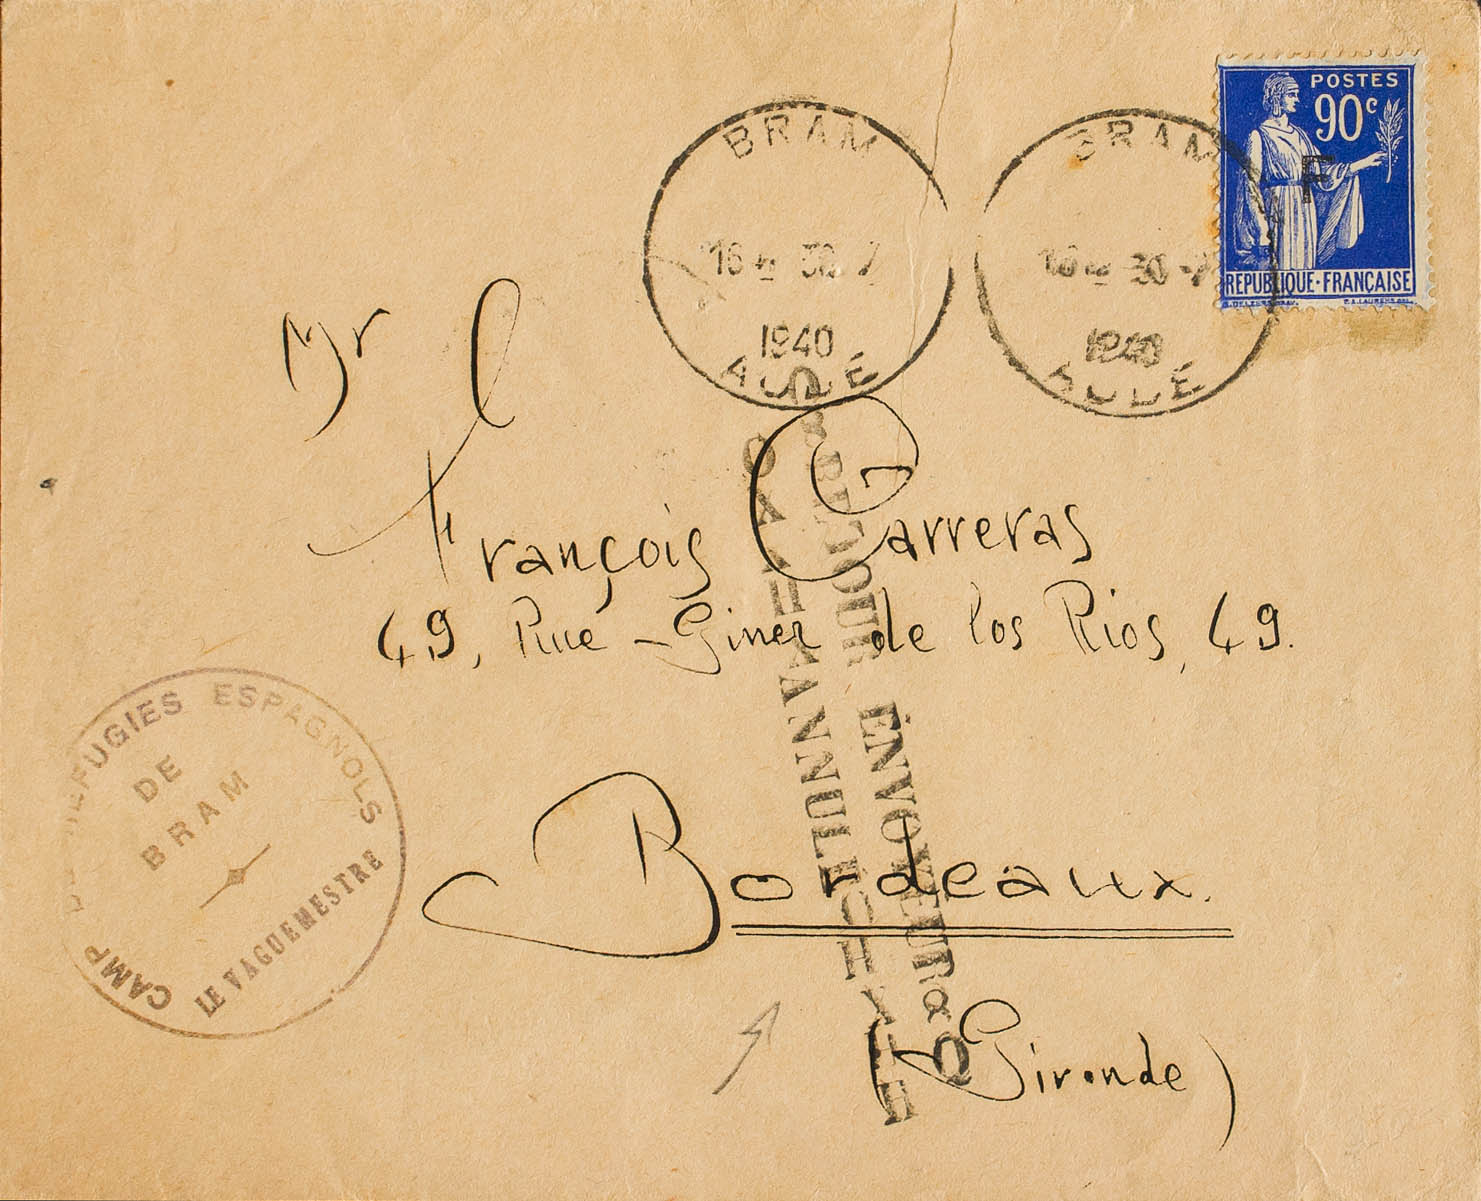 POSTES
90c
F
REPUBLIQUE·FRANÇAISE
BRAM
16 H 30 - 7
1940
AUDE
BRAM
16 H 30 - 7
1940
AUDE
Mr
François Carreras
49, Rue - Giner de los Rios, 49.
Bordeaux.
(Gironde)
RETOUR ÉNVOYEUR
CAMP REFUGIES ESPAGNOLS
DE
BRAM
LE VAGUEMESTRE